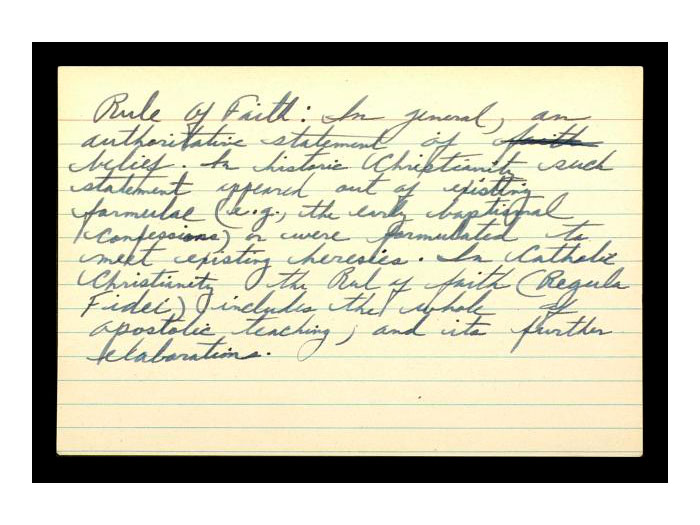 Rule of Faith: In general, an
authoritative statement of faith
belief. In historic Christianity such
statement appeared out of existing
formulae (e.g., the early baptismal
confessions) or were formulated to
meet existing heresies. In Catholic
Christianity the Rul of faith (Regula
Fidei) includes the whole of
apostolic teaching, and its further
elaborations.